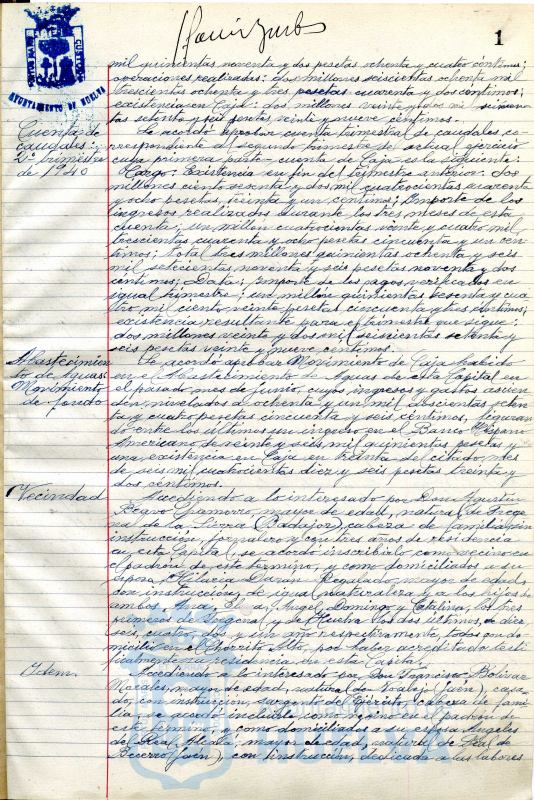 1
AYUNTAMIENTO DE HUELVA
mil quinientas noventa y dos pesetas ochenta y cuatro céntimos;
operaciones realizadas: dos millones seiscientas ochenta mil
trescientas ochenta y tres pesetas cuarenta y dos céntimos;
existencia en Caja: dos millones veinte y dos mil seiscien-
tas setenta y seis pesetas veinte y nueve céntimos.
Cuenta de
caudales:
2º trimestre
de 1940
Se acordó aprobar cuenta trimestral de caudales, co-
rrespondiente al segundo trimestre del actual ejercicio
cuya primera parte-cuenta de Caja es la siguiente:
Cargo: Existencia en fin del trimestre anterior: dos
millones ciento sesenta y dos mil cuatrocientas cuarenta
y ocho pesetas, treinta y un céntimos; Importe de los
ingresos realizados durante los tres meses de esta
cuenta; un millón cuatrocientas veinte y cuatro mil
trescientas cuarenta y ocho pesetas cincuenta y un cén-
timos; Total tres millones quinientas ochenta y seis
mil setecientas noventa y seis pesetas noventa y dos
céntimos; Data: Importe de los pagos verificados en
igual trimestre: un millón quinientas sesenta y cua
tro mil ciento veinte pesetas cincuenta y tres céntimos;
existencia resultante para el trimestre que sigue:
dos millones veinte y dos mil seiscientas setenta y
seis pesetas veinte y nueve céntimos.
Abastecimien
to de Aguas:
Movimiento
de fondo
Se acordó aprobar Movimiento de Caja habido
en el Abastecimiento de Aguas de esta Capital en
el pasado mes de junio, cuyos ingresos y gastos ascien
den nivelados a ochenta y un mil doscientas ochen-
ta y cuatro pesetas cincuenta y seis céntimos, figuran
do entre los últimos un ingreso en el Banco Hispano
Americano de veinte y seis mil quinientas pesetas y
una existencia en Caja en treinta del citado mes
de seis mil cuatrocientas diez y seis pesetas treinta y
dos céntimos.
Vecindad
Accediendo a lo interesado por Don Agustín
Chamorro, mayor de edad, natural de Frege
nal de la Sierra (Badajoz), cabeza de familia, sin
instrucción, jornalero y con tres años de residencia
en esta Capital, se acordó inscribirlo como vecino en
el padrón de este término, y como domiciliados a su
esposa, Hilaria Durán Regalado, mayor de edad,
con instrucción, de igual naturaleza y a los hijos de
ambos, Ana, Angel, Domingo y Catalina, los tres
primeros de Fregenal y de Huelva los dos últimos, de diez,
seis, cuatro, dos y un año respectivamente, todos con do
micilio en el Chorrito Alto, por haber acreditado testi
ficalmente su residencia en esta Capital.
Idem.
Accediendo a lo interesado por Don Francisco Bolívar
Morales, mayor de edad, natural de Noalejo (Jaén), casa
do, con instrucción, sargento del Ejército, cabeza de fami-
lia, se acordó incluirlo como vecino en el padrón de
este término, y como domiciliados a su esposa Angeles
del Real Alcalá, mayor de edad, natural de
Becerro (Jaén), con instrucción, dedicada a las labores